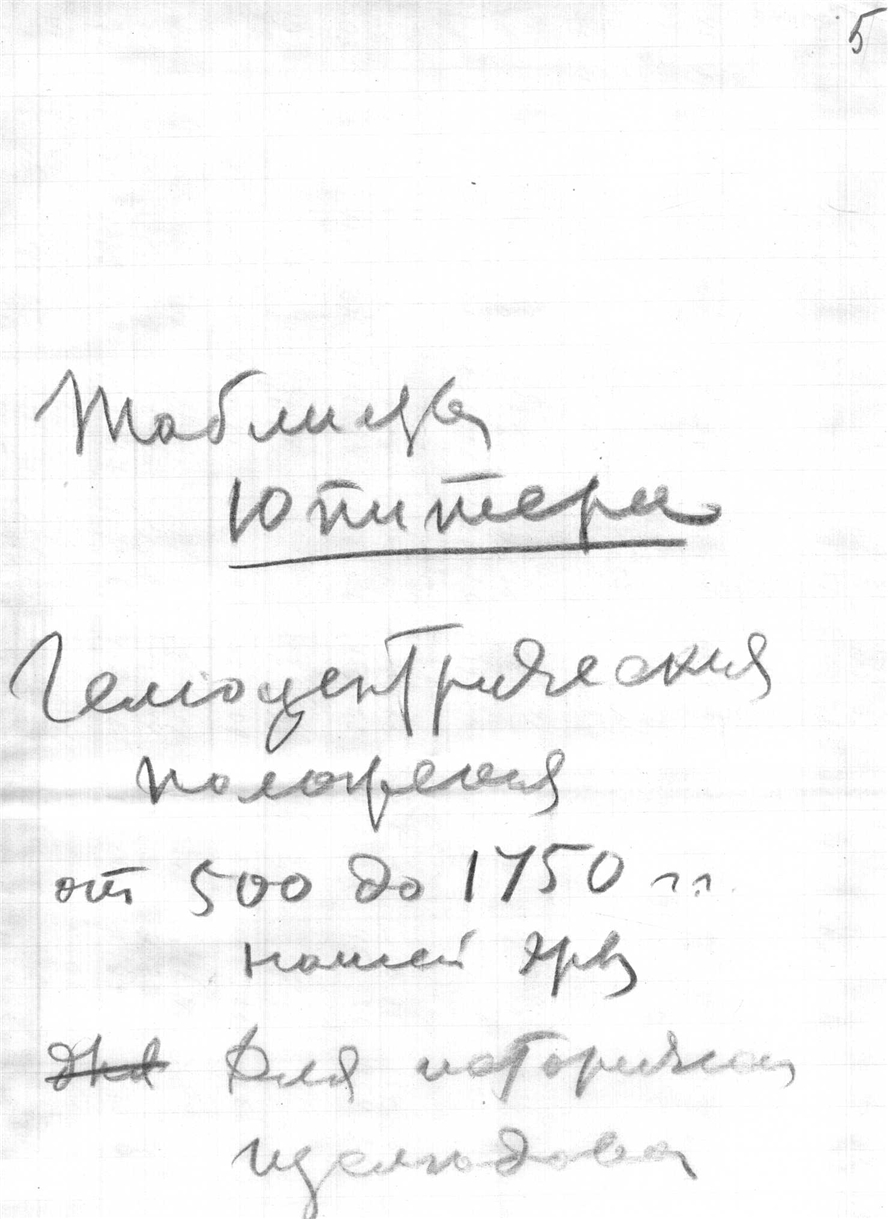 5
Таблица
Юпитера
Гелиоцентрическия
положения
от 500 до 1750 гг.
нашей эры
для Для историческ
исследова